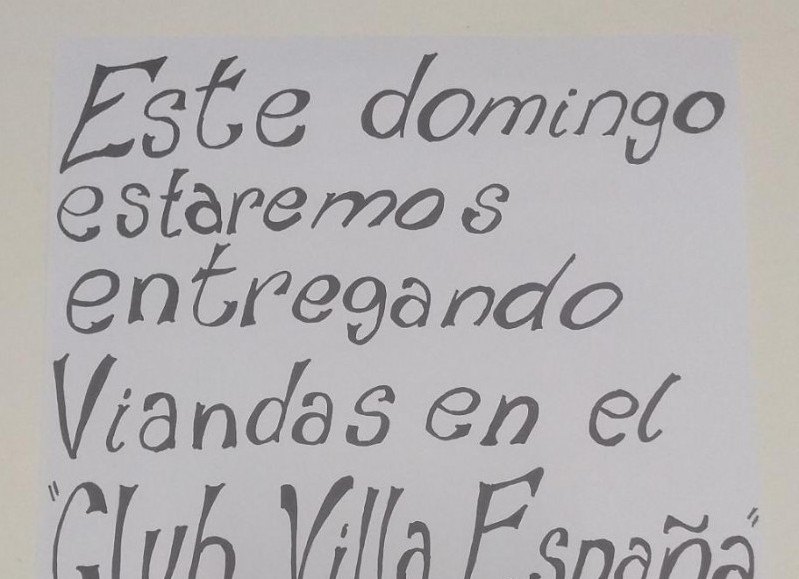 Este domingo
estaremos
entregando
Viandas en el
"Club Villa España"